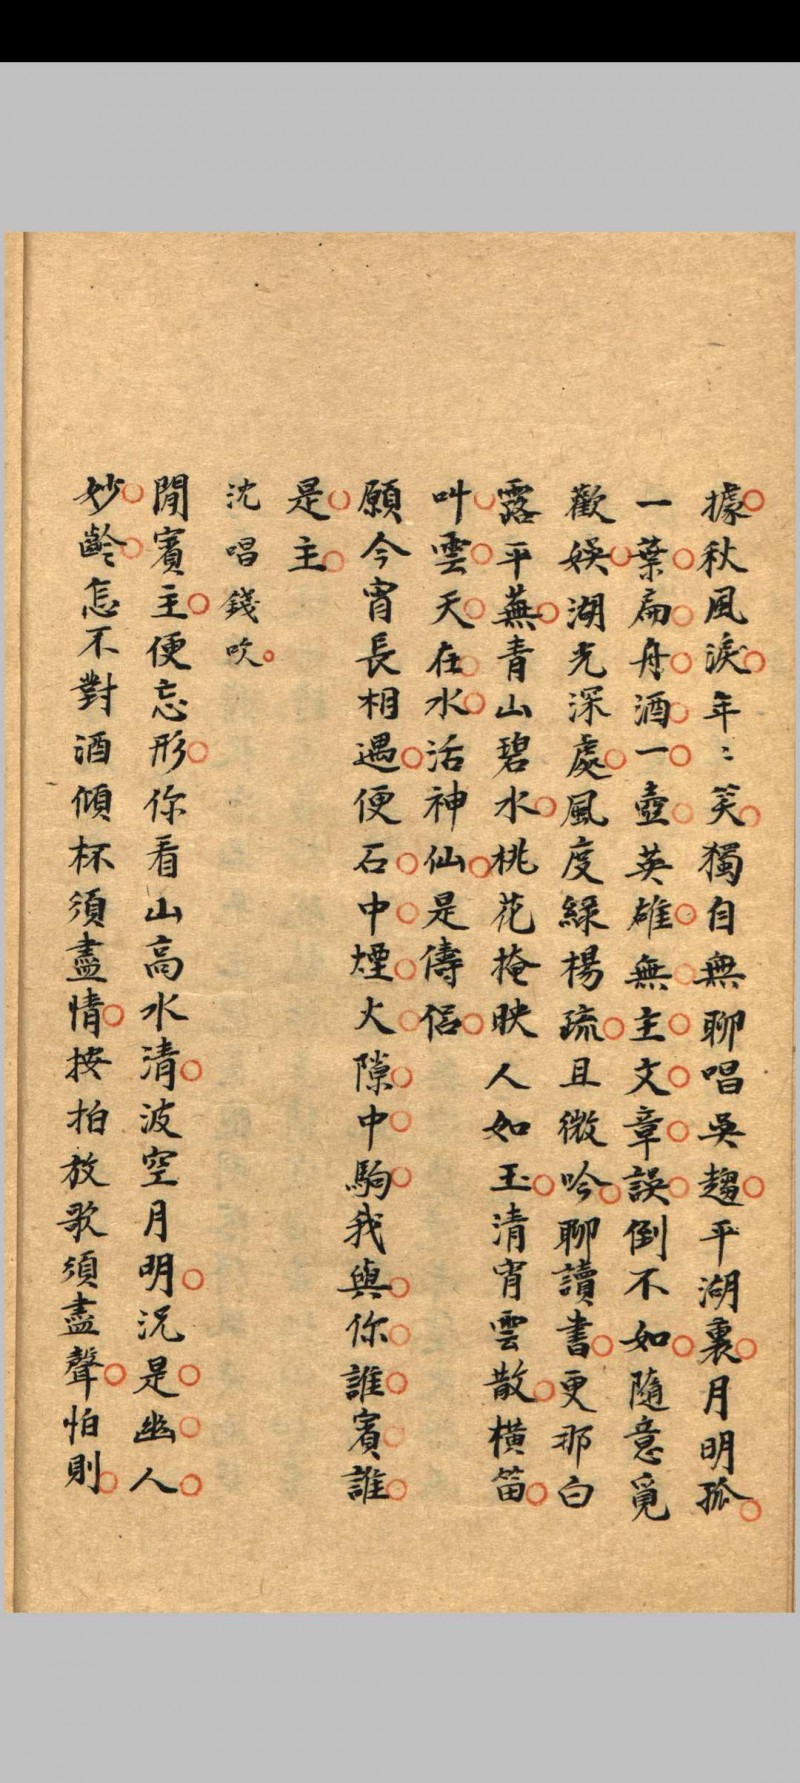 據秋風淚年〻笑獨自無聊唱吳趨平湖裏月明孤
一葉扁舟酒一壺英雄無主文章誤倒不如隨意覓
歡娛湖光深處風度綠楊疏且微吟聊讀書更那白
露平蕪青山碧水桃花掩映人如玉清宵雲散橫笛
叫雲天在水活神仙是儔侶
願今宵長相遇便石中煙火隙中駒我與你誰賓誰
是主
沈唱錢吹
閒賓主便忘形你看山高水清波空月明況是幽人
妙齡怎不對酒傾杯須盡情按拍放歌須盡聲怕則